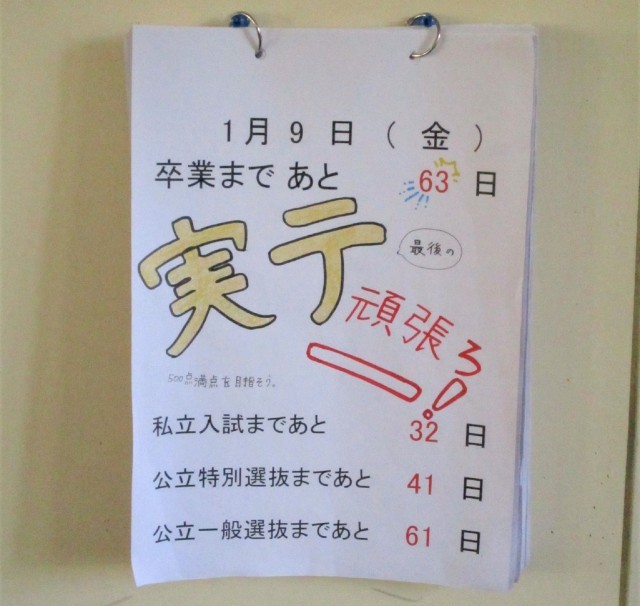 1月9日(金)
卒業まであと 63 日
実テ
最後の
頑張ろー!
500点満点を目指そう。
私立入試まであと 32 日
公立特別選抜まであと 41 日
公立一般選抜まであと 61 日